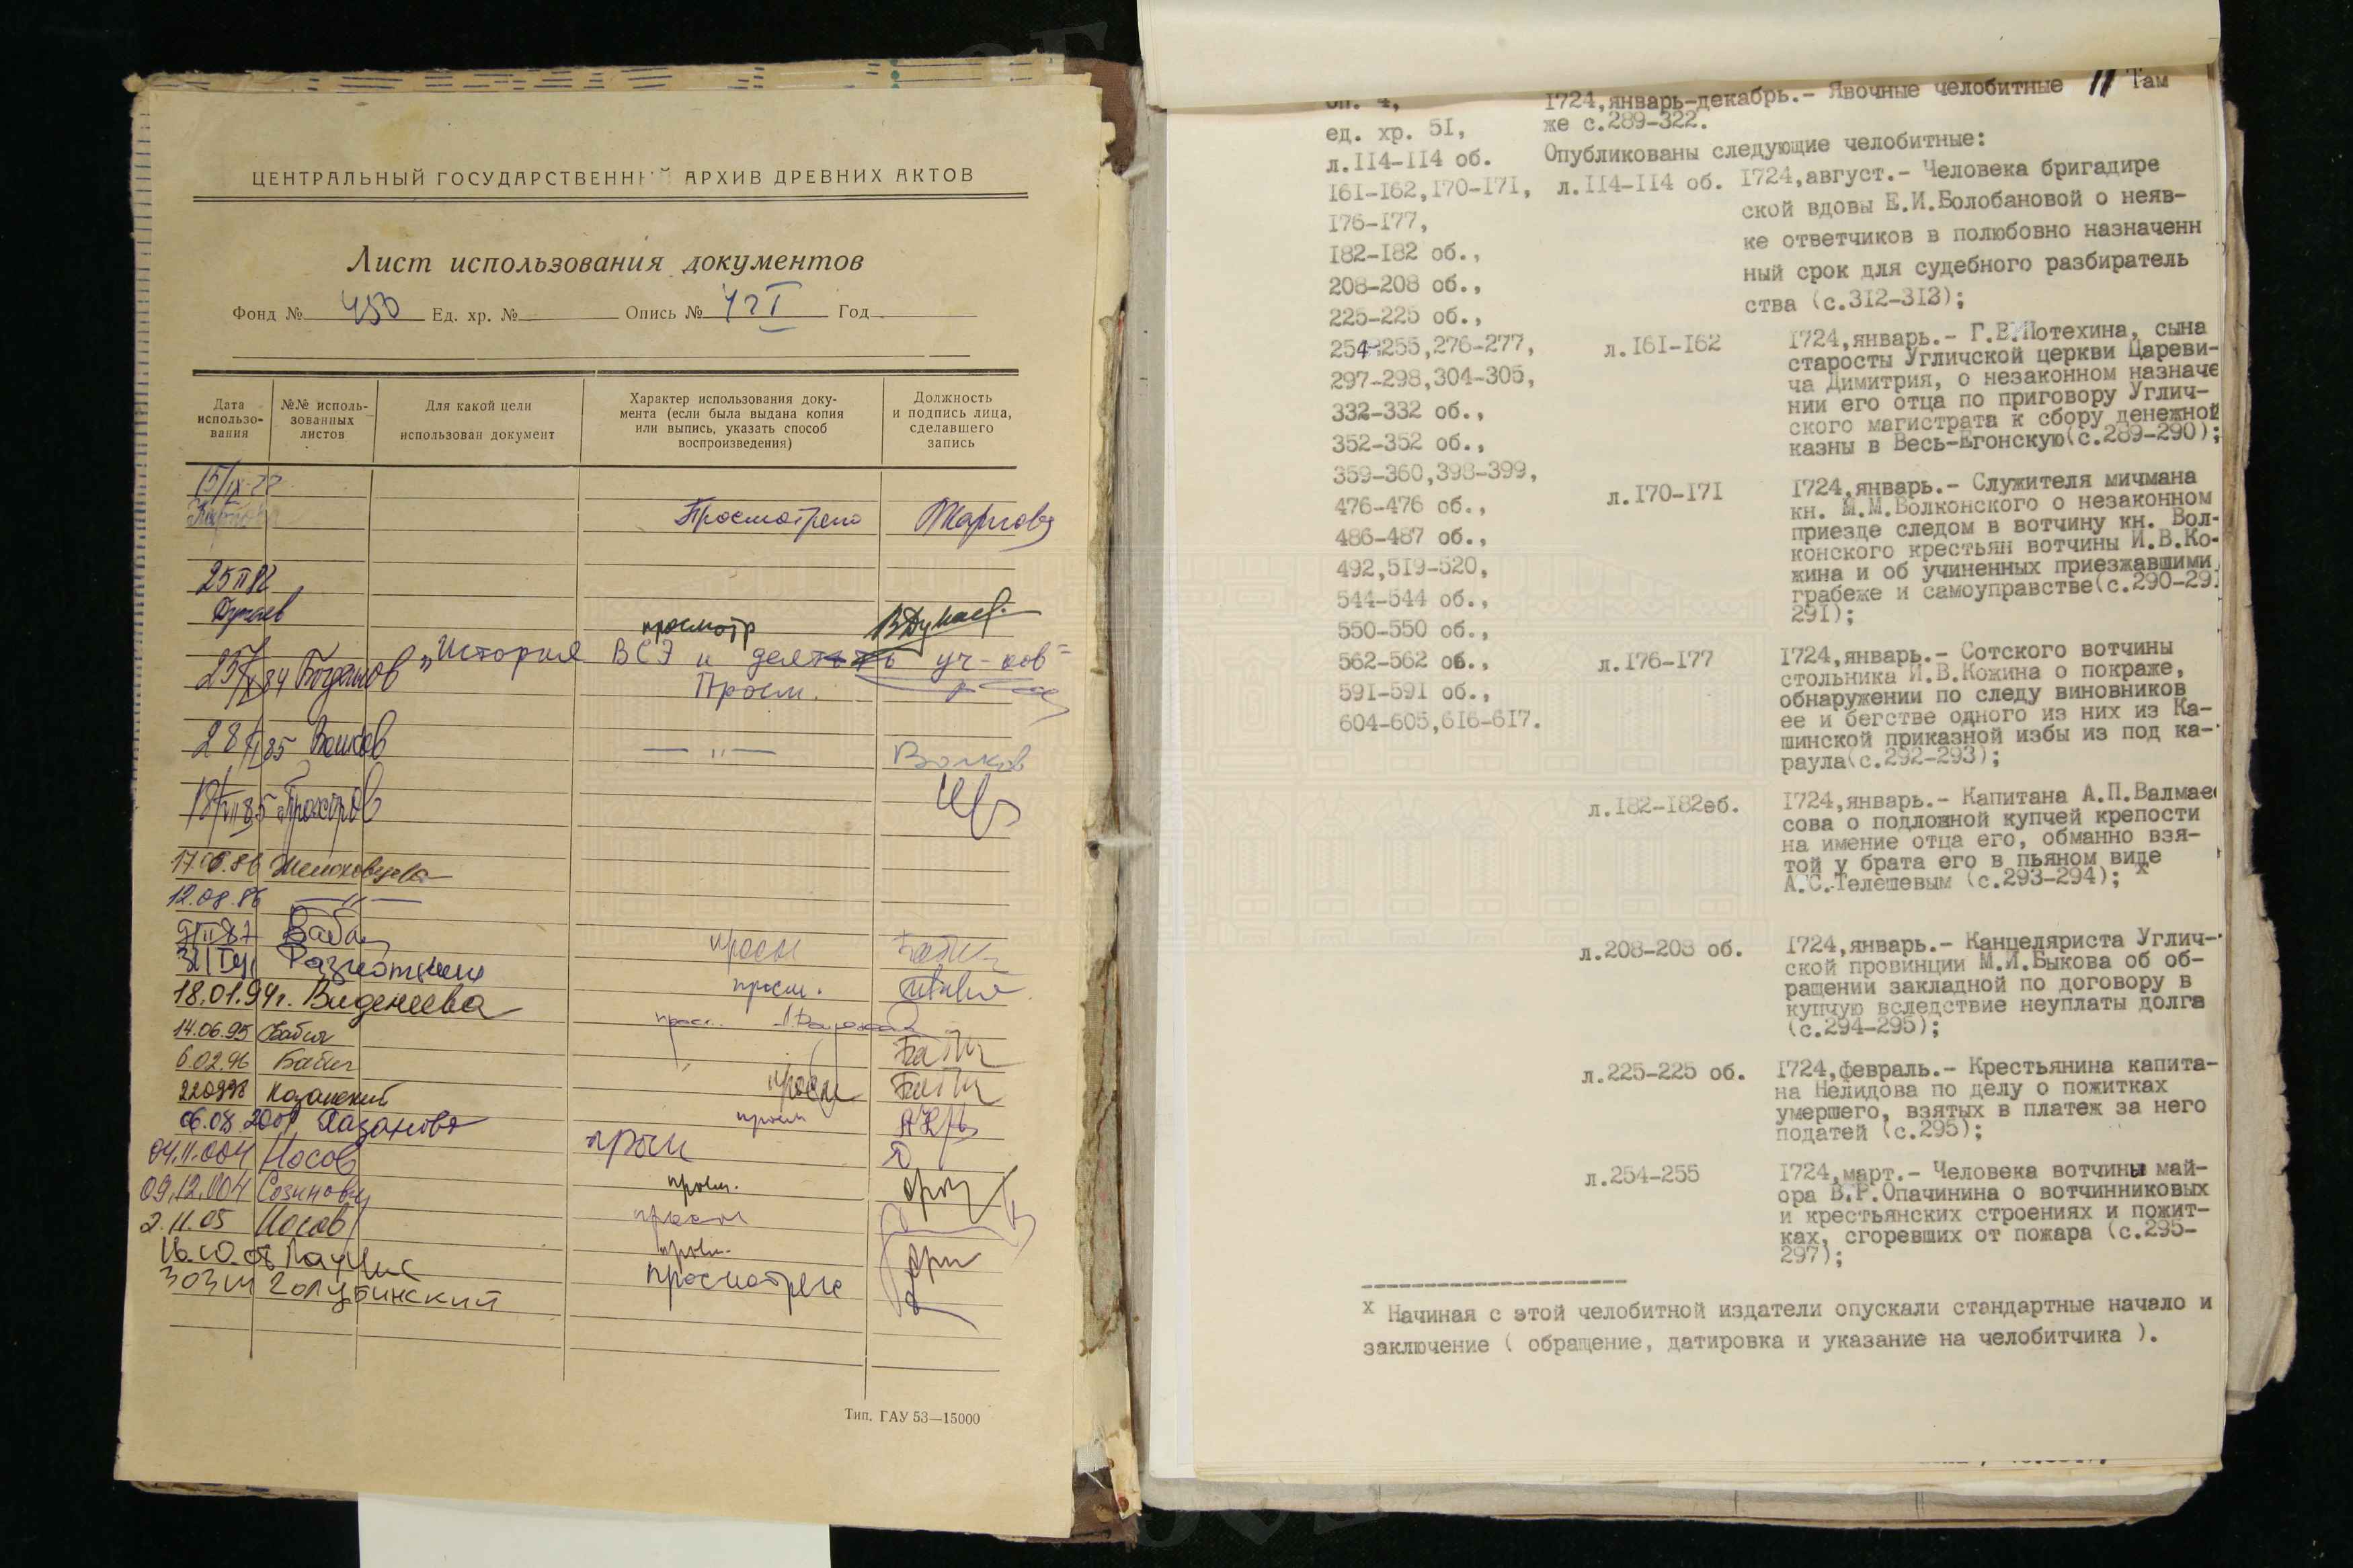 ЦЕНТРАЛЬНЫЙ ГОСУДАРСТВЕННЫЙ АРХИВ ДРЕВНИХ АКТОВ
Лист использования документов
Фонд № 450 Ед. хр. № Опись № Год
Дата использо-вания
№№ исполь-зованных листов
Для какой цели использован документ
Характер использования доку-мента (если была выдана копия или выпись, указать способ воспроизведения)
Должность и подпись лица, сделавшего запись
Просмотрено
просмотр
25/X 84 Богданов „История ВСЭ и деят-ть уч-ков"
Просм.
Волков — „ — Волков
17.06.86
12.08.86 — „ —
просм
просм.
18.01.94г. Виденеева
14.06.95 Бабич
6.02.96 Бабич
просм
Казанский
06.08.2001 Казакова просм
04.11.004 Носов просм
09.12.004 просм.
2.11.05 Носов просм
просм.
Голубинский просмотрено
Тип. ГАУ 53—15000
оп. 4,
ед. хр. 51,
л.114-114 об.
161-162,170-171,
176-177,
182-182 об.,
208-208 об.,
225-225 об.,
254-255,276-277,
297-298,304-305,
332-332 об.,
352-352 об.,
359-360,398-399,
476-476 об.,
486-487 об.,
492,519-520,
544-544 об.,
550-550 об.,
562-562 об.,
591-591 об.,
604-605,616-617.
1724,январь-декабрь.- Явочные челобитные // Там
же с.289-322.
Опубликованы следующие челобитные:
л.114-114 об. 1724,август.- Человека бригадире
ской вдовы Е.И.Болобановой о неяв-
ке ответчиков в полюбовно назначенн
ный срок для судебного разбиратель
ства (с.312-313);
л.161-162 1724,январь.- Г.В.Потехина, сына
старосты Угличской церкви Цареви-
ча Димитрия, о незаконном назначе
нии его отца по приговору Углич-
ского магистрата к сбору денежной
казны в Весь-Егонскую(с.289-290);
л.170-171 1724,январь.- Служителя мичмана
кн. М.М.Волконского о незаконном
приезде следом в вотчину кн. Вол-
конского крестьян вотчины И.В.Ко-
жина и об учиненных приезжавшими
грабеже и самоуправстве(с.290-291
291);
л.176-177 1724,январь.- Сотского вотчины
стольника И.В.Кожина о покраже,
обнаружении по следу виновников
ее и бегстве одного из них из Ка-
шинской приказной избы из под ка-
раула(с.292-293);
л.182-182об. 1724,январь.- Капитана А.П.Валмае
сова о подложной купчей крепости
на имение отца его, обманно взя-
той у брата его в пьяном виде
А.С.Телешевым (с.293-294); x
л.208-208 об. 1724,январь.- Канцеляриста Углич-
ской провинции М.И.Быкова об об-
ращении закладной по договору в
купчую вследствие неуплаты долга
(с.294-295);
л.225-225 об. 1724,февраль.- Крестьянина капита-
на Нелидова по делу о пожитках
умершего, взятых в платеж за него
податей (с.295);
л.254-255 1724,март.- Человека вотчины май-
ора В.Р.Опачинина о вотчинниковых
и крестьянских строениях и пожит-
ках, сгоревших от пожара (с.295-
297);
x Начиная с этой челобитной издатели опускали стандартные начало и
заключение ( обращение, датировка и указание на челобитчика ).